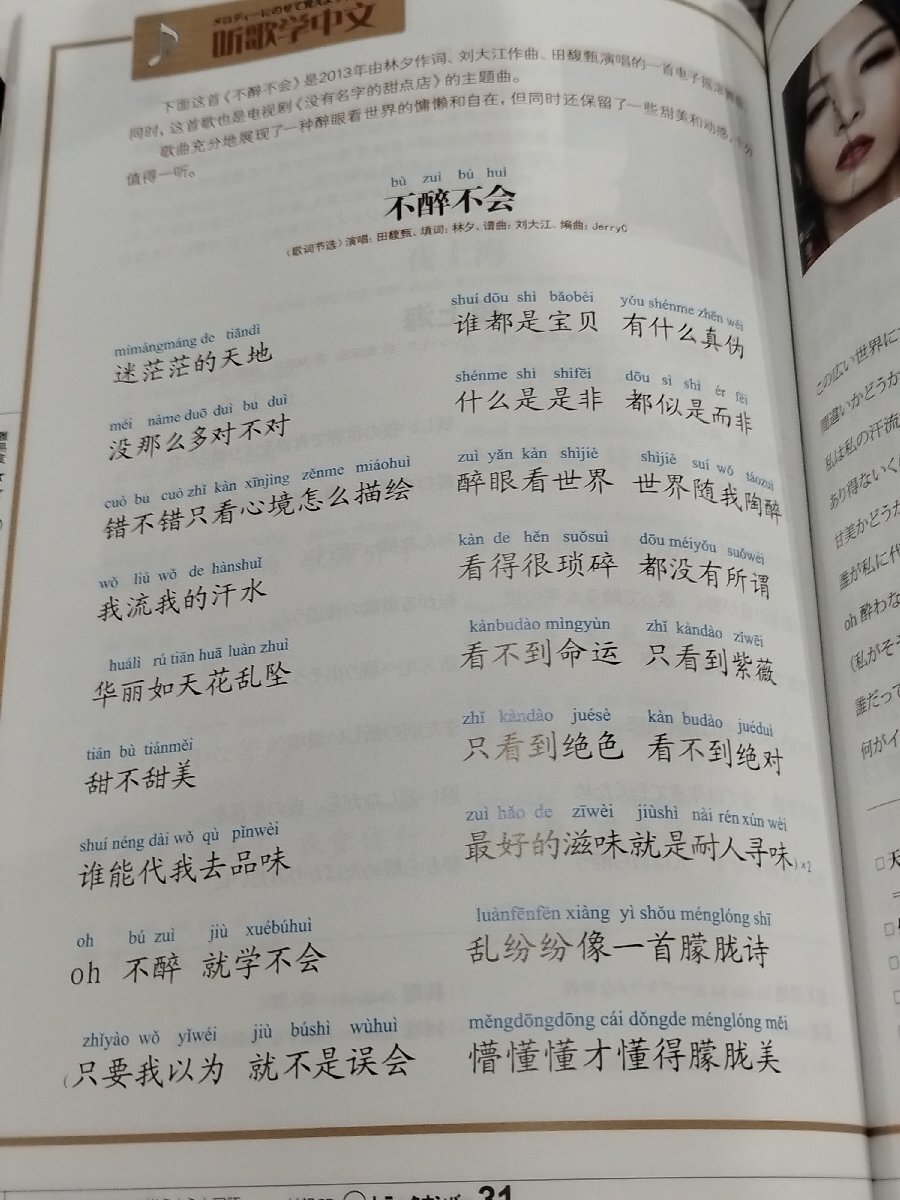 听歌学中文
下面这首《不醉不会》是2013年由林夕作词、刘大江作曲、田馥甄演唱的一首电子摇滚舞曲
同时，这首歌也是电视剧《没有名字的甜点店》的主题曲。
歌曲充分地展现了一种醉眼看世界的慵懒和自在，但同时还保留了一些甜美和动感，十分
值得一听。
bù zuì bú huì
不醉不会
（歌词节选）演唱：田馥甄、填词：林夕、谱曲：刘大江、编曲：JerryC
mímángmáng de tiāndì
迷茫茫的天地
méi nàme duō duì bu duì
没那么多对不对
cuò bu cuò zhǐ kàn xīnjìng zěnme miáohuì
错不错只看心境怎么描绘
wǒ liú wǒ de hànshuǐ
我流我的汗水
huálì rú tiān huā luàn zhuì
华丽如天花乱坠
tián bù tiánměi
甜不甜美
shuí néng dài wǒ qù pǐnwèi
谁能代我去品味
oh bú zuì jiù xuébúhuì
oh 不醉 就学不会
zhǐyào wǒ yǐwéi jiù búshì wùhuì
（只要我以为 就不是误会
shuí dōu shì bǎobèi yǒu shénme zhēn wěi
谁都是宝贝 有什么真伪
shénme shì shìfēi dōu sì shì ér fēi
什么是是非 都似是而非
zuì yǎn kàn shìjiè shìjiè suí wǒ táozuì
醉眼看世界 世界随我陶醉
kàn de hěn suǒsuì dōu méiyǒu suǒwèi
看得很琐碎 都没有所谓
kànbudào mìngyùn zhǐ kàndào zǐwēi
看不到命运 只看到紫薇
zhǐ kàndào juésè kàn budào juéduì
只看到绝色 看不到绝对
zuì hǎo de zīwèi jiùshì nài rén xún wèi
最好的滋味就是耐人寻味）×2
luànfēnfēn xiàng yì shǒu ménglóng shī
乱纷纷像一首朦胧诗
měngdōngdōng cái dǒngde ménglóng měi
懵懂懂才懂得朦胧美
31